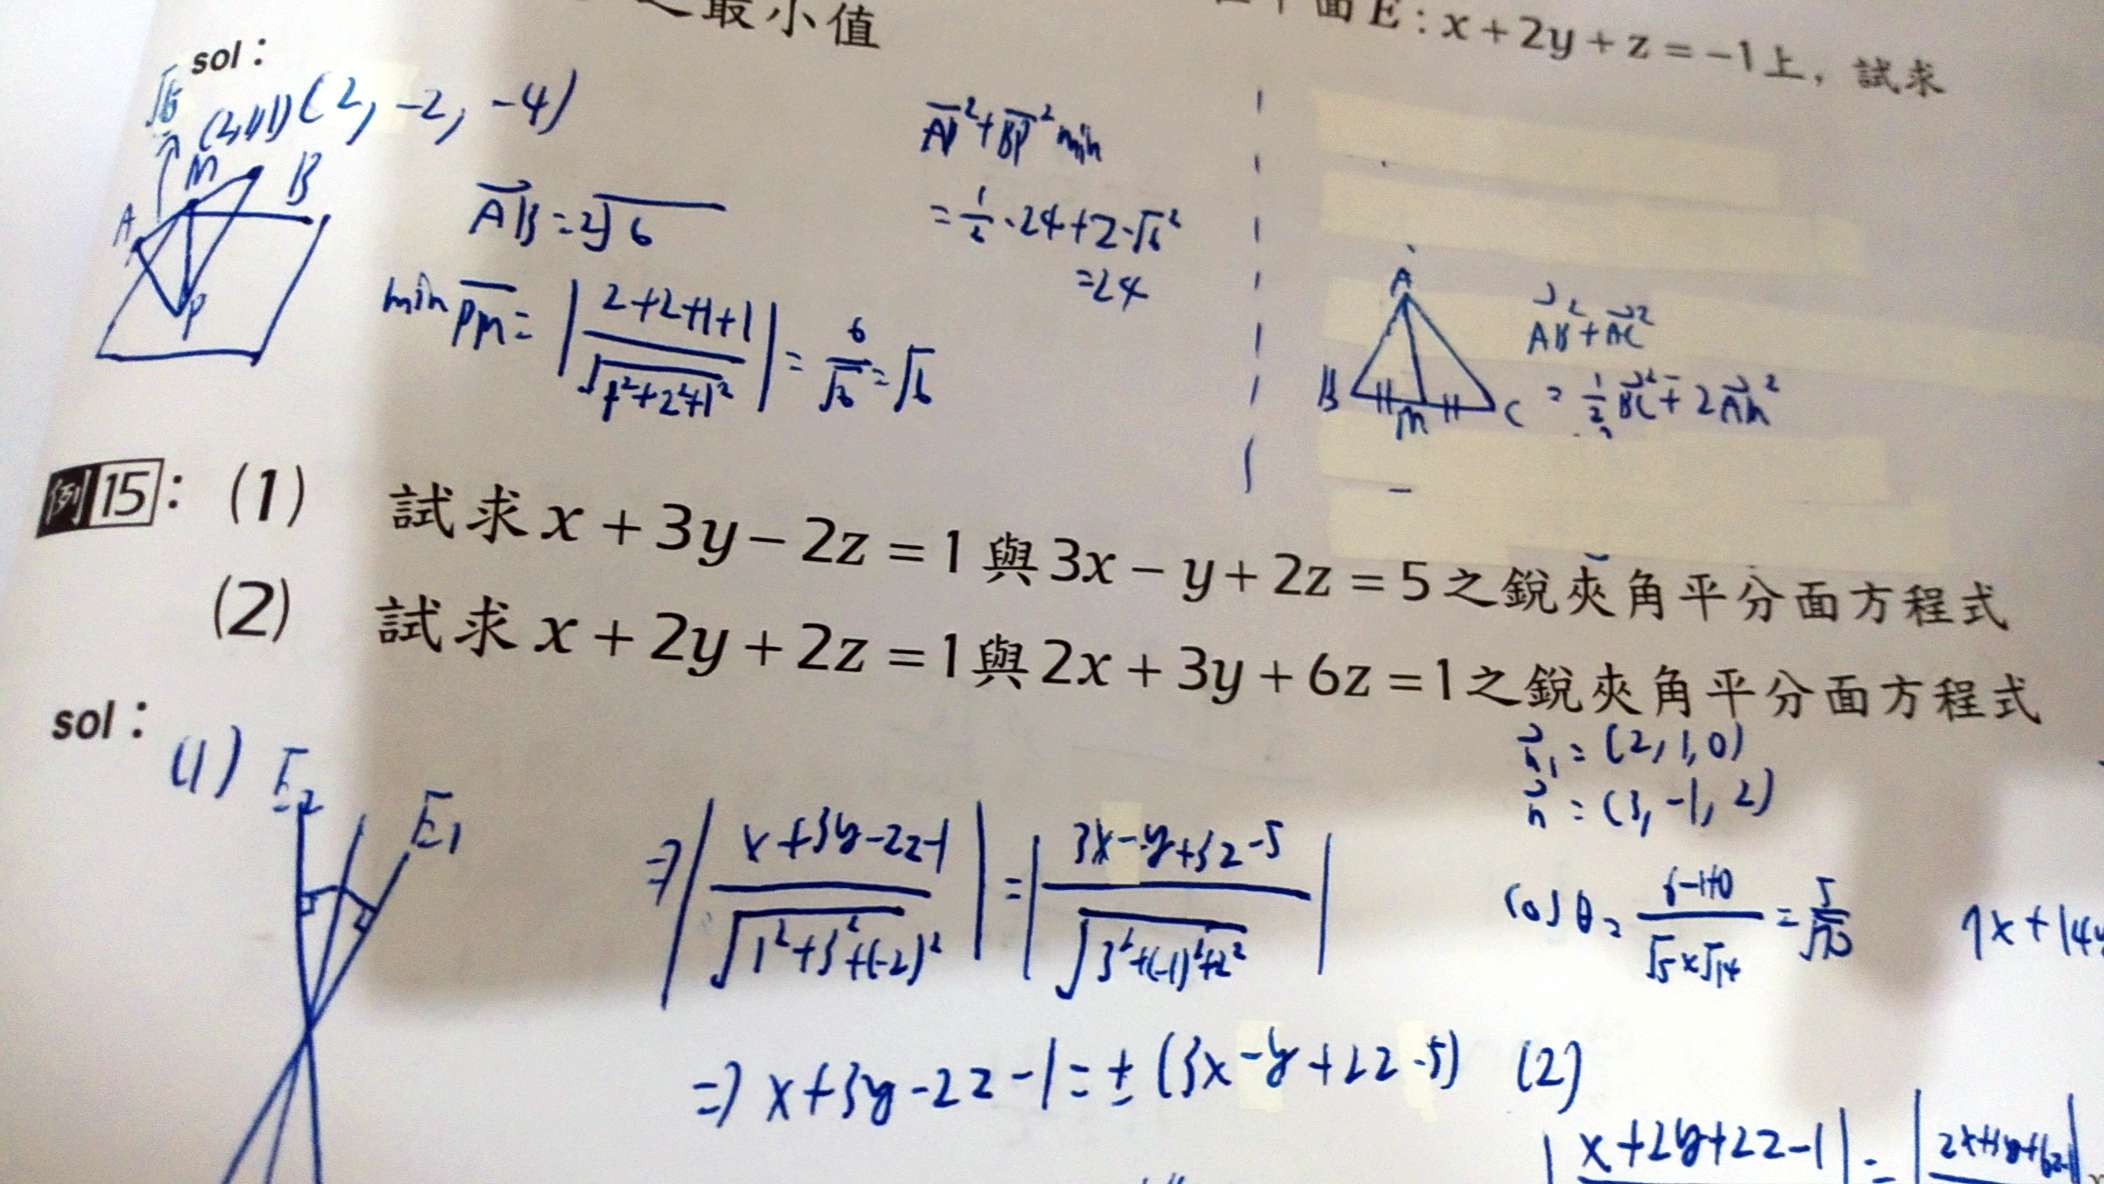 之最小值
面E:x+2y+z=-1上，試求
sol：
√6 (2,1,1) (2, -2, -4)
A M B
P
AB=2√6
min PM = |2+2+1+1 / √1²+2²+1²| = 6/√6 = √6
AP²+BP² min
= 1/2·24+2·√6²
=24
A
B M C
AB²+AC²
= 1/2 BC²+2AM²
例15：(1) 試求x+3y-2z=1與3x-y+2z=5之銳夾角平分面方程式
(2) 試求x+2y+2z=1與2x+3y+6z=1之銳夾角平分面方程式
sol：
(1) E2 E1
⇒ |x+3y-2z-1 / √1²+3²+(-2)²| = |3x-y+2z-5 / √3²+(-1)²+2²|
⇒ x+3y-2z-1=±(3x-y+2z-5)
n₁=(2,1,0)
n=(3,-1,2)
cosθ= 6-1+0 / √5×√14 = 5/√70
7x+14y
(2)
|x+2y+2z-1| = |2x+3y+6z-1|